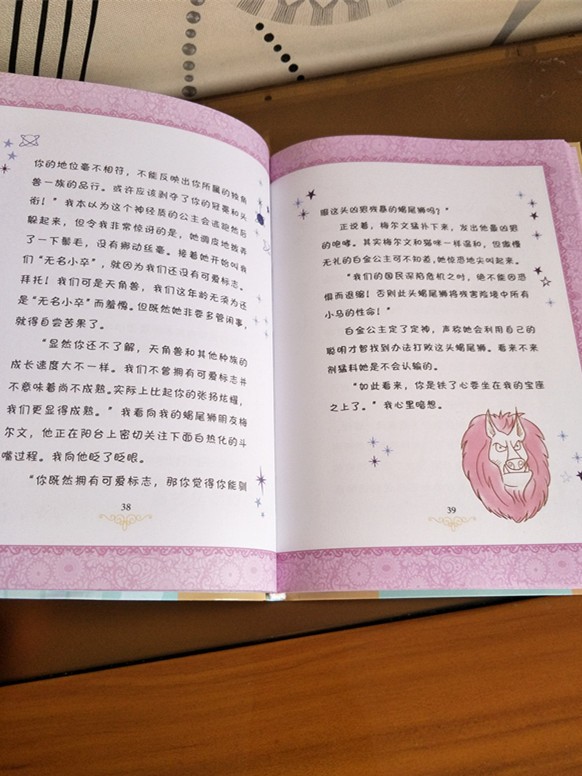 你的地位毫不相符，不能反映出你所属的独角
兽一族的品行。或许应该剥夺了你的冠冕和头
衔！”我本以为这个神经质的公主会逃跑然后
躲起来，但令我非常惊讶的是，她调皮地拨弄
了一下鬃毛，没有挪动丝毫。接着她开始叫我
们“无名小卒”，就因为我们还没有可爱标志。
拜托！我们可是天角兽，我们这年龄无须为还
是“无名小卒”而羞愧。但既然她非要多管闲事，
就得自尝苦果了。
“显然你还不了解，天角兽和其他种族的
成长速度大不一样。我们不曾拥有可爱标志并
不意味着尚不成熟。实际上比起你的张扬炫耀，
我们更显得成熟。”我看向我的蝎尾狮朋友梅
尔文，他正在阳台上密切关注下面白热化的斗
嘴过程。我向他眨了眨眼。
“你既然拥有可爱标志，那你觉得你能驯
38
服这头凶猛残暴的蝎尾狮吗？”
正说着，梅尔文猛扑下来，发出他最凶猛
的咆哮。其实梅尔文和猫咪一样温和，但傲慢
无礼的白金公主可不知道，她惊恐地尖叫起来。
“我们的国民深陷危机之时，绝不能因恐
惧而退缩！否则此头蝎尾狮将残害险境中所有
小马的性命！”
白金公主定了定神，声称她会利用自己的
聪明才智找到办法打败这头蝎尾狮。看来不来
剂猛料她是不会认输的。
“如此看来，你是铁了心要坐在我的宝座
之上了。”我心里暗想。
39